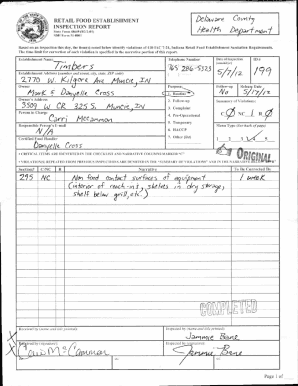 RETAIL FOOD ESTABLISHMENT
INSPECTION REPORT
Delaware County
Health Department
Based on an inspection this day, the item(s) noted below identify violations of 410 IAC 7-24, Indiana Retail Food Establishment Sanitation Requirements.
The time limit for correction of each violation is specified in the narrative portion of this report.
Establishment Name
Timbers
Telephone Number
765 286-5323
Date of Inspection
5/7/12
ID #
199
Establishment Address (number and street, city, state, ZIP code)
2770 W. Kilgore Ave Muncie, IN
Owner
Mark & Danyelle Cross
Purpose:
Follow-up
No
Release Date
5/17/12
Owner's Address
3509 W CR 325 S. Muncie, IN
2. Follow-up
3. Complaint
4. Pre-Operational
5. Temporary
6. HACCP
7. Other (list)
Summary of Violations:
C 0 NC 1 R 0
Person in Charge
Corri McCammon
Responsible Person's E-mail
N/A
Certified Food Handler
Danyelle Cross
1 2 3 4 5
ORIGINAL
Section#
C/NC
R
Narrative
To Be Corrected By
295 NC Non food contact surfaces of equipment 1 week
(interior of reach-in, shelves in dry storage,
shelf below grill, etc.)
COMPLETED
Received by (name and title printed):
Inspected by (name and title printed):
Jammie Bane
Received by (signature):
Inspected by (signature):
Page 1 of